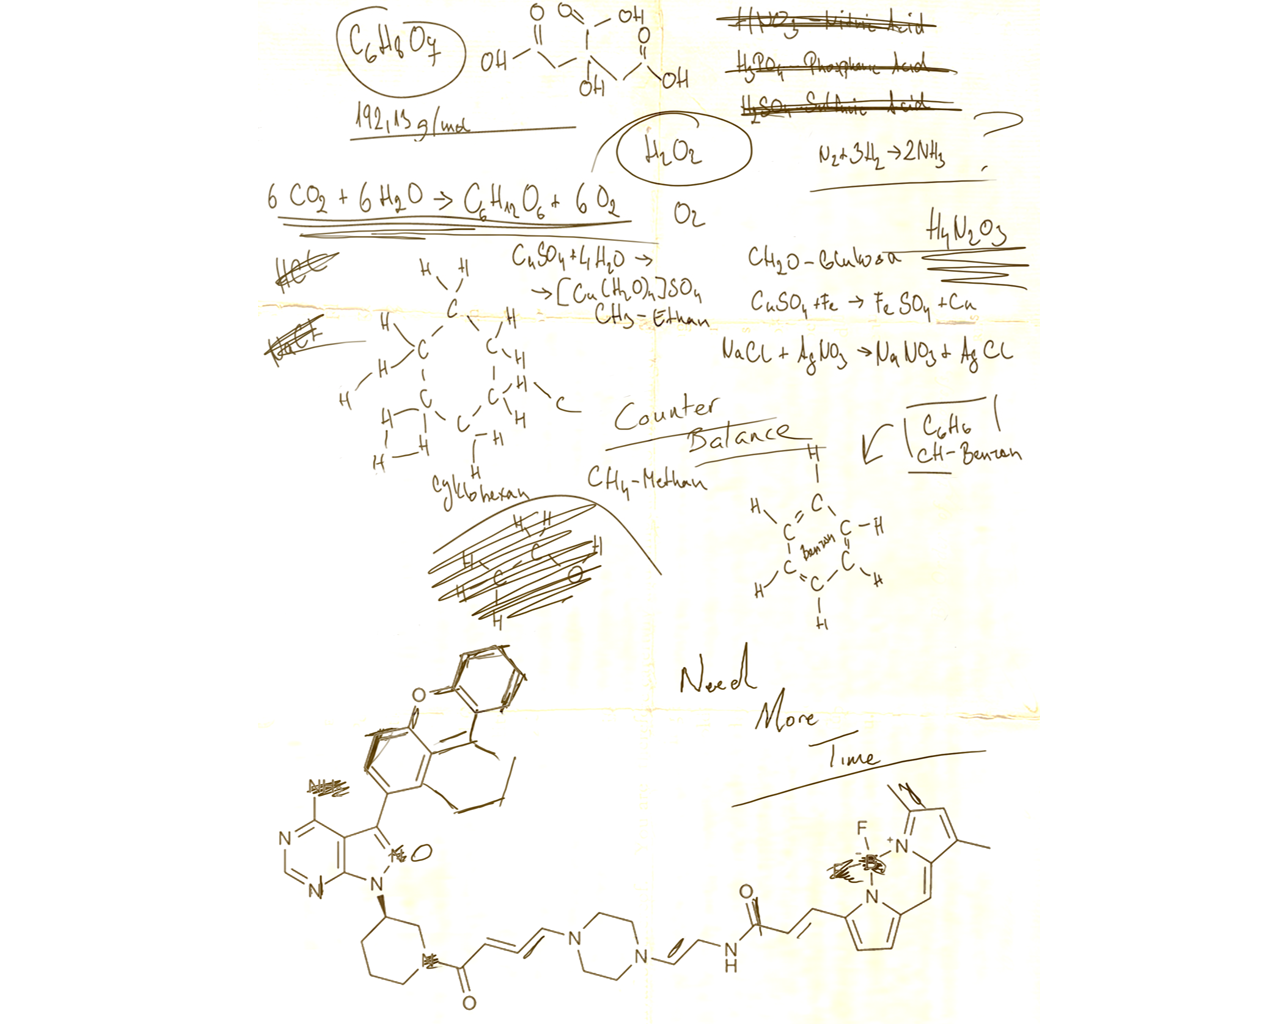 C6H8O7
192,13 g/mol
O O OH
O
OH OH OH
HNO3 - Nitric Acid
H3PO4 - Phosphoric Acid
H2SO4 - Sulfuric Acid
?
H2O2
N2 + 3H2 → 2NH3
6 CO2 + 6 H2O → C6H12O6 + 6 O2
O2
H4N2O3
HCl
CuSO4 + 4H2O →
→ [Cu(H2O)4]SO4
CH3 - Ethan
CH2O - Glukosa
CuSO4 + Fe → FeSO4 + Cu
NaCl
NaCl + AgNO3 → NaNO3 + AgCl
H H
C
H H
C C
H H
H H C
C C
H C H
H H H
H
Cyklohexan
Counter
Balance
C6H6
CH - Benzen
CH4 - Methan
H
H C
C C H
Benzen
C C
H C H
H
H H
H C H
H C O
H
Need
More
Time
O
NH
N
N N O
N
N
O
N
N
N
H
O
F
B
N
N